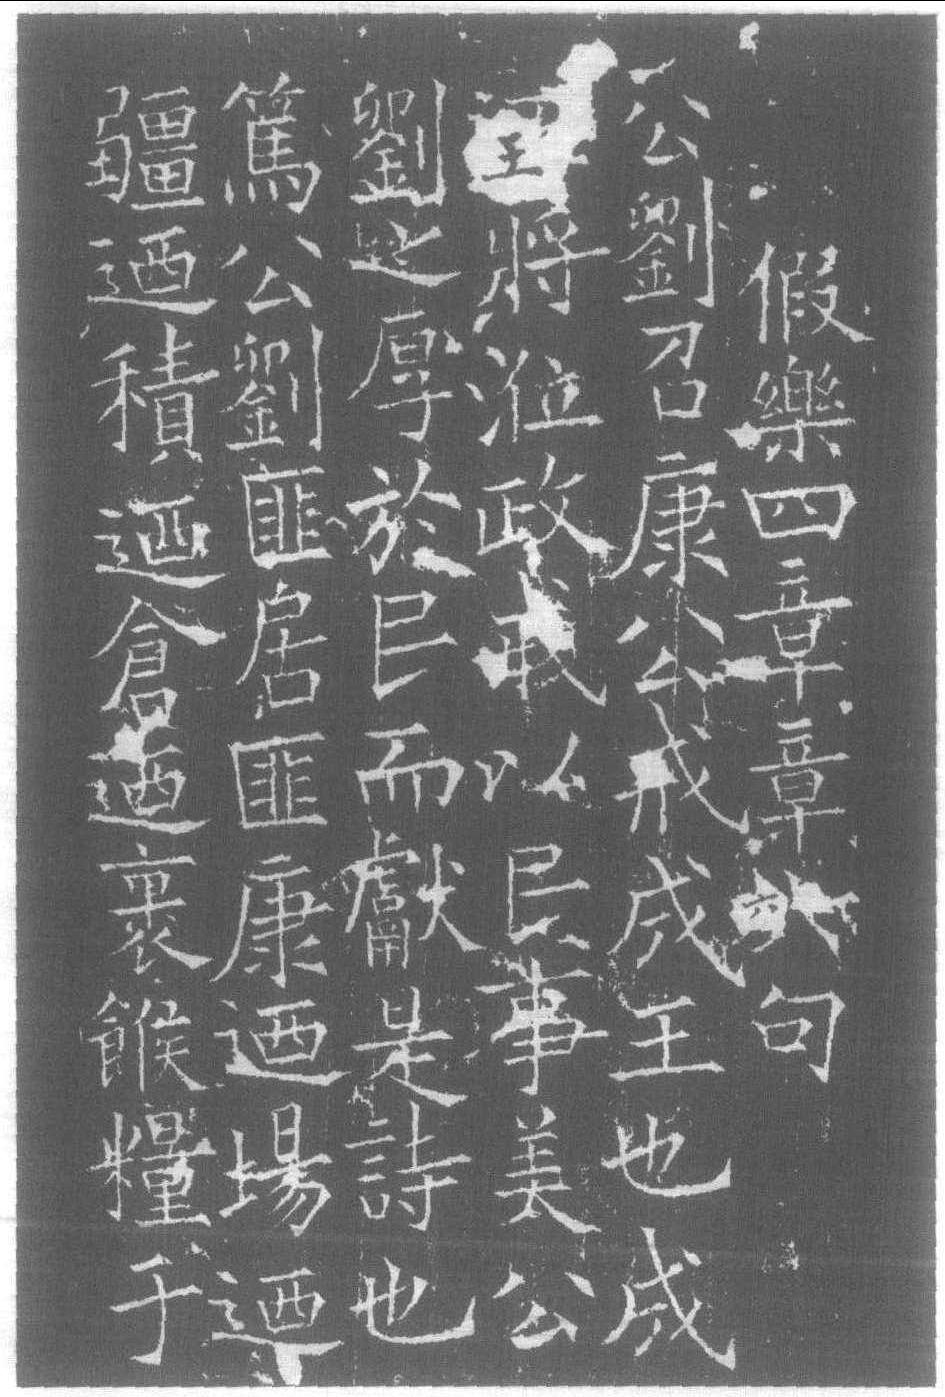 假樂四章章六句
公劉召康公戒成王也成
王將涖政戒以民事美公
劉之厚於民而獻是詩也
篤公劉匪居匪康迺場迺
疆迺積迺倉迺裹餱糧于